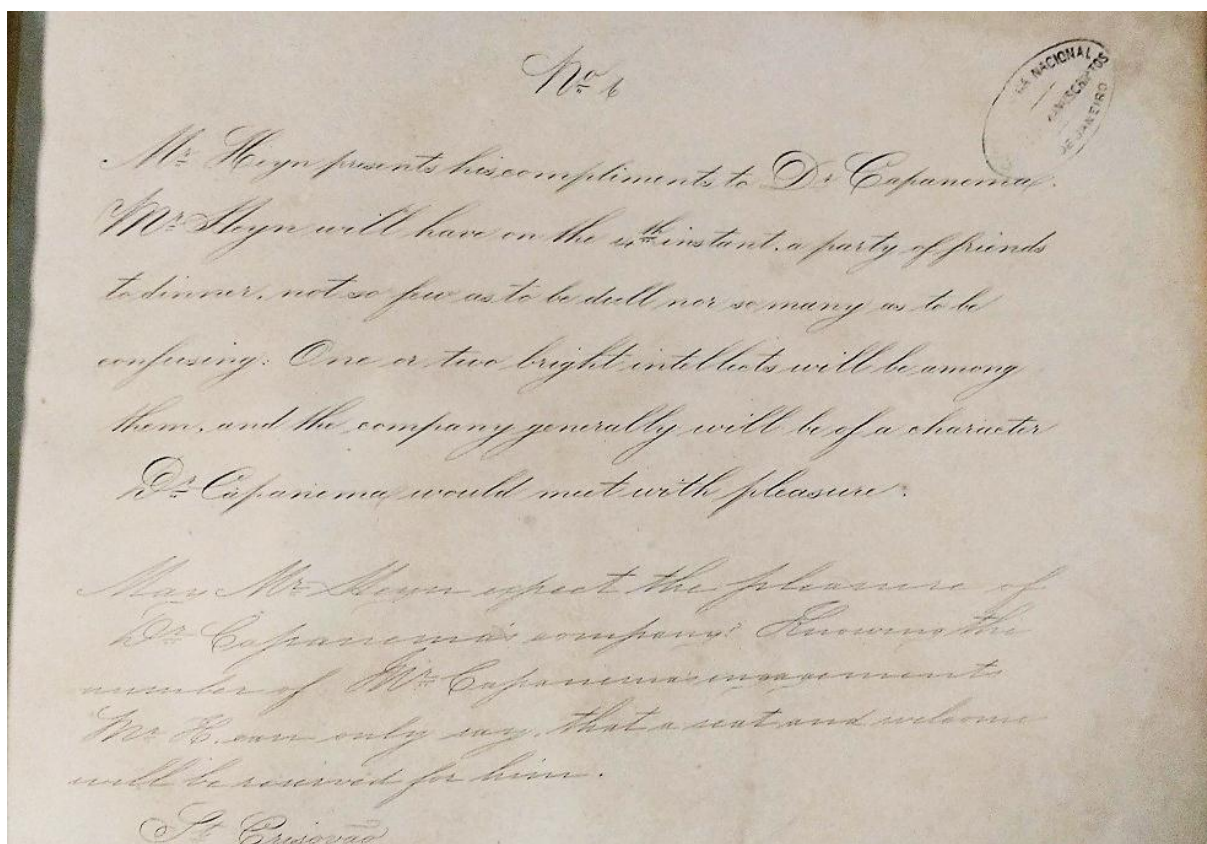 No 6
NACIONAL
DE JANEIRO
Mr Heyn presents his compliments to Dr Capanema.
Mr Heyn will have on the 4th instant, a party of friends
to dinner, not so few as to be dull nor so many as to be
confusing. One or two bright intellects will be among
them, and the company generally will be of a character
Dr Capanema would meet with pleasure.
May Mr Heyn expect the pleasure of
Dr Capanema's company? Knowing the
number of Mr Capanema's engagements
Mr H. can only say, that a seat and welcome
will be reserved for him.
St Crisovão